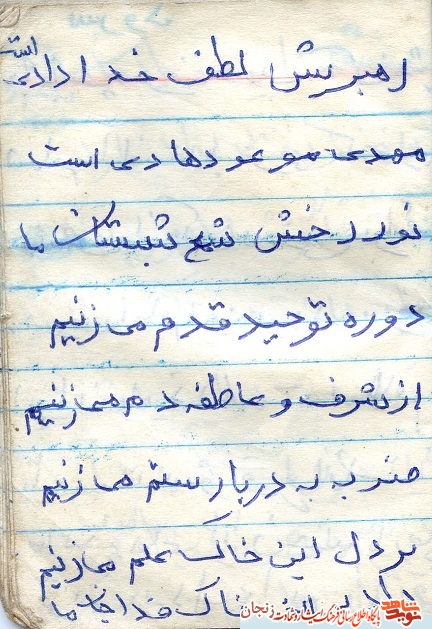 رهبریش لطف خدا دادی است
مهدی موعود هادی است
نور رخش شمع شبستان ما
دوره توحید قدم می زنیم
از شرف و عاطفه دم می زنیم
ضربه به دربار ستم ما زنیم
بر دل این خاک علم ما زنیم
پاک خدا ما
پایگاه اطلاع رسانی فرهنگ ایثار و شهادت زنجان
نوید شاهد